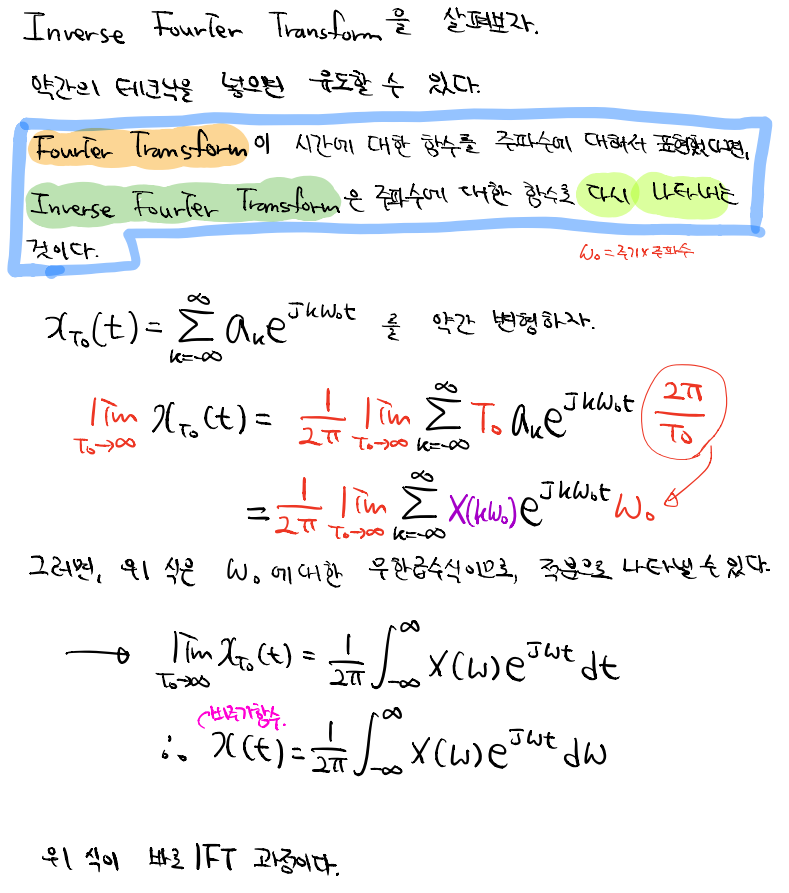 Inverse Fourier Transform을 살펴보자.
약간의 테크닉을 넣으면 유도할 수 있다.
Fourier Transform이 시간에 대한 함수를 주파수에 대해서 표현했다면,
Inverse Fourier Transform은 주파수에 대한 함수로 다시 나타내는
것이다.
ω₀=주기×주파수
x_{T₀}(t) = \sum_{k=-∞}^{∞} a_k e^{jkω₀t} 를 약간 변형하자.
\lim_{T₀→∞} x_{T₀}(t) = \frac{1}{2π} \lim_{T₀→∞} \sum_{k=-∞}^{∞} T₀ a_k e^{jkω₀t} \frac{2π}{T₀}
= \frac{1}{2π} \lim_{T₀→∞} \sum_{k=-∞}^{∞} X(kω₀) e^{jkω₀t} ω₀
그러면, 위 식은 ω₀에 대한 무한급수식이므로, 적분으로 나타낼 수 있다.
→ \lim_{T₀→∞} x_{T₀}(t) = \frac{1}{2π} \int_{-∞}^{∞} X(ω) e^{jωt} dt
비주기함수.
∴ x(t) = \frac{1}{2π} \int_{-∞}^{∞} X(ω) e^{jωt} dω
위 식이 바로 IFT 과정이다.